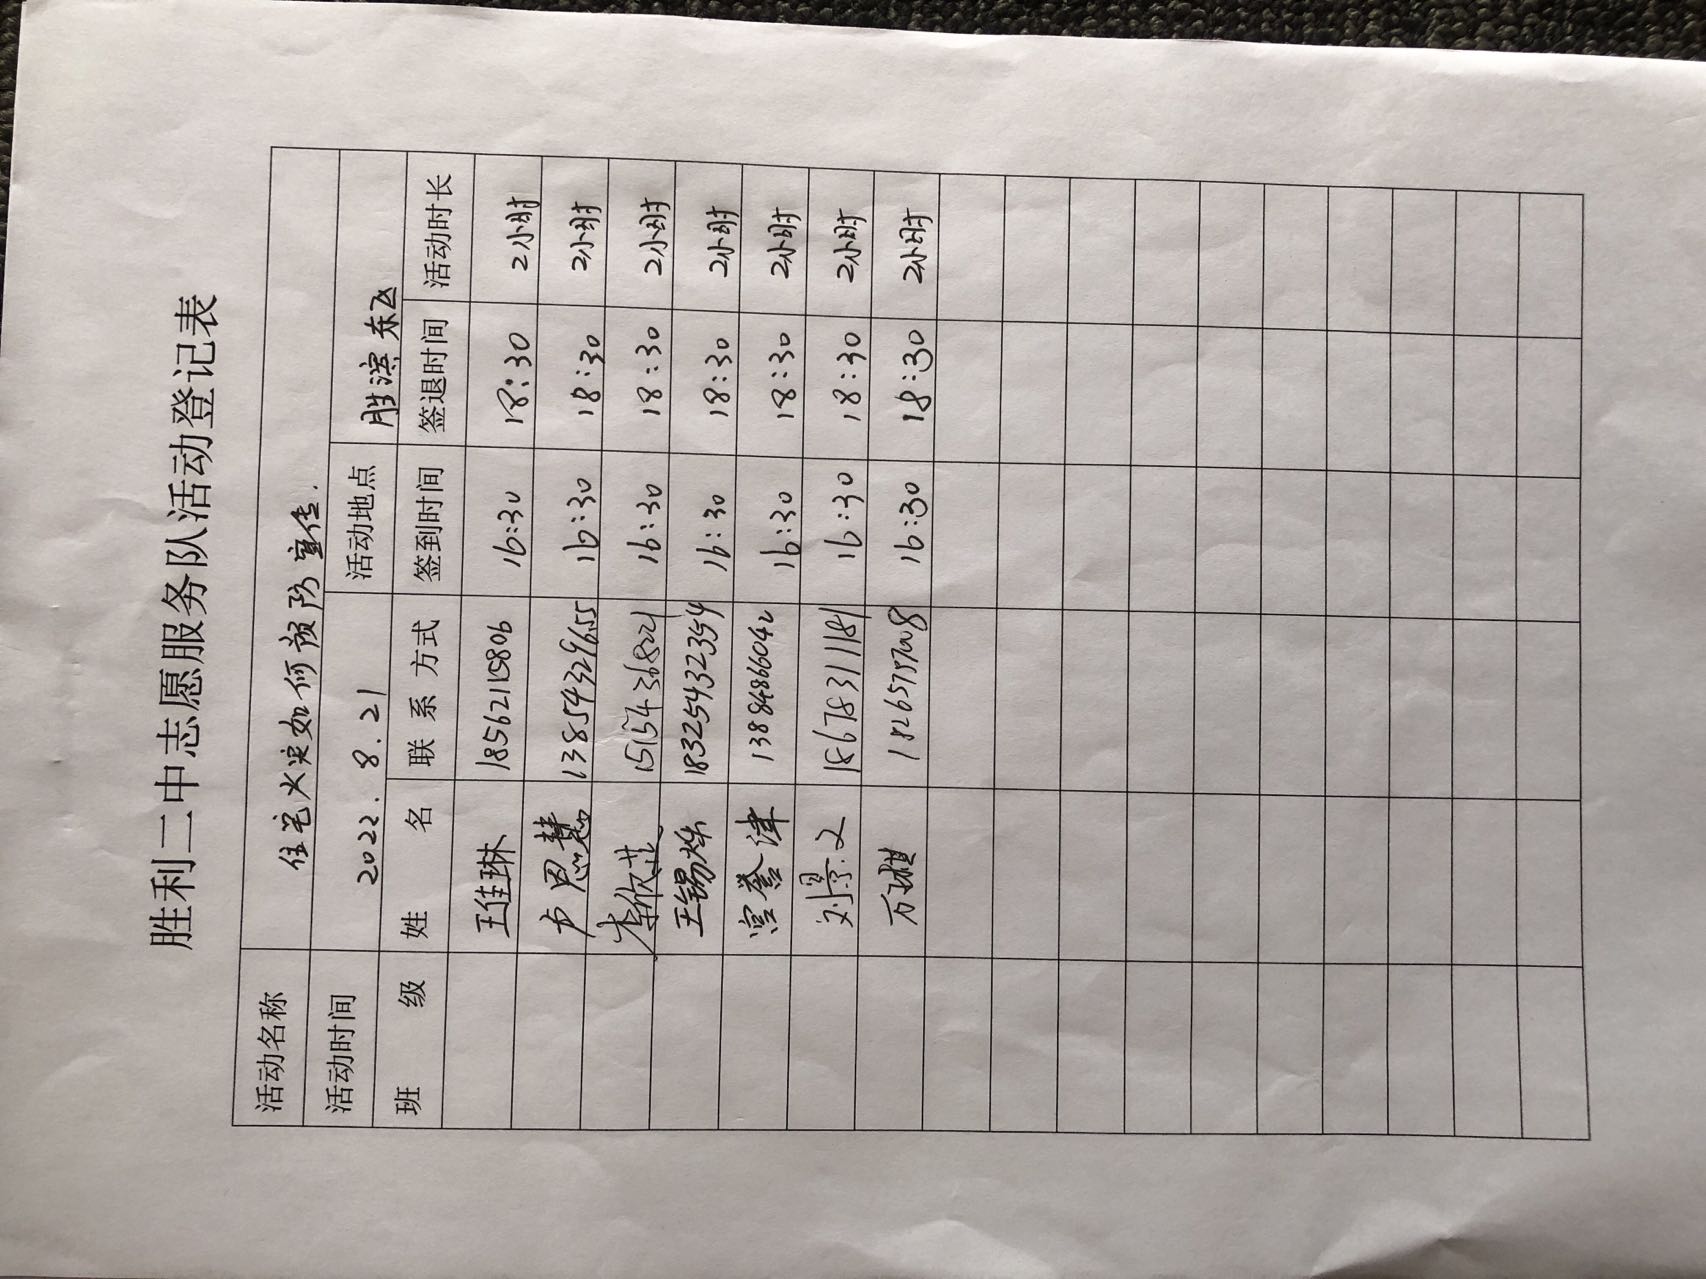 胜利二中志愿服务队活动登记表
活动名称 住宅火灾如何预防宣传.
活动时间 2022.8.21 活动地点 胜滨东区
班 级 姓 名 联系方式 签到时间 签退时间 活动时长
王佳琳 18562115806 16:30 18:30 2小时
卢思慧 13854329655 16:30 18:30 2小时
李欣芷 15154368221 16:30 18:30 2小时
王锡烁 18325432354 16:30 18:30 2小时
宫誉津 13884866042 16:30 18:30 2小时
刘景文 18678311181 16:30 18:30 2小时
万琪 16:30 18:30 2小时